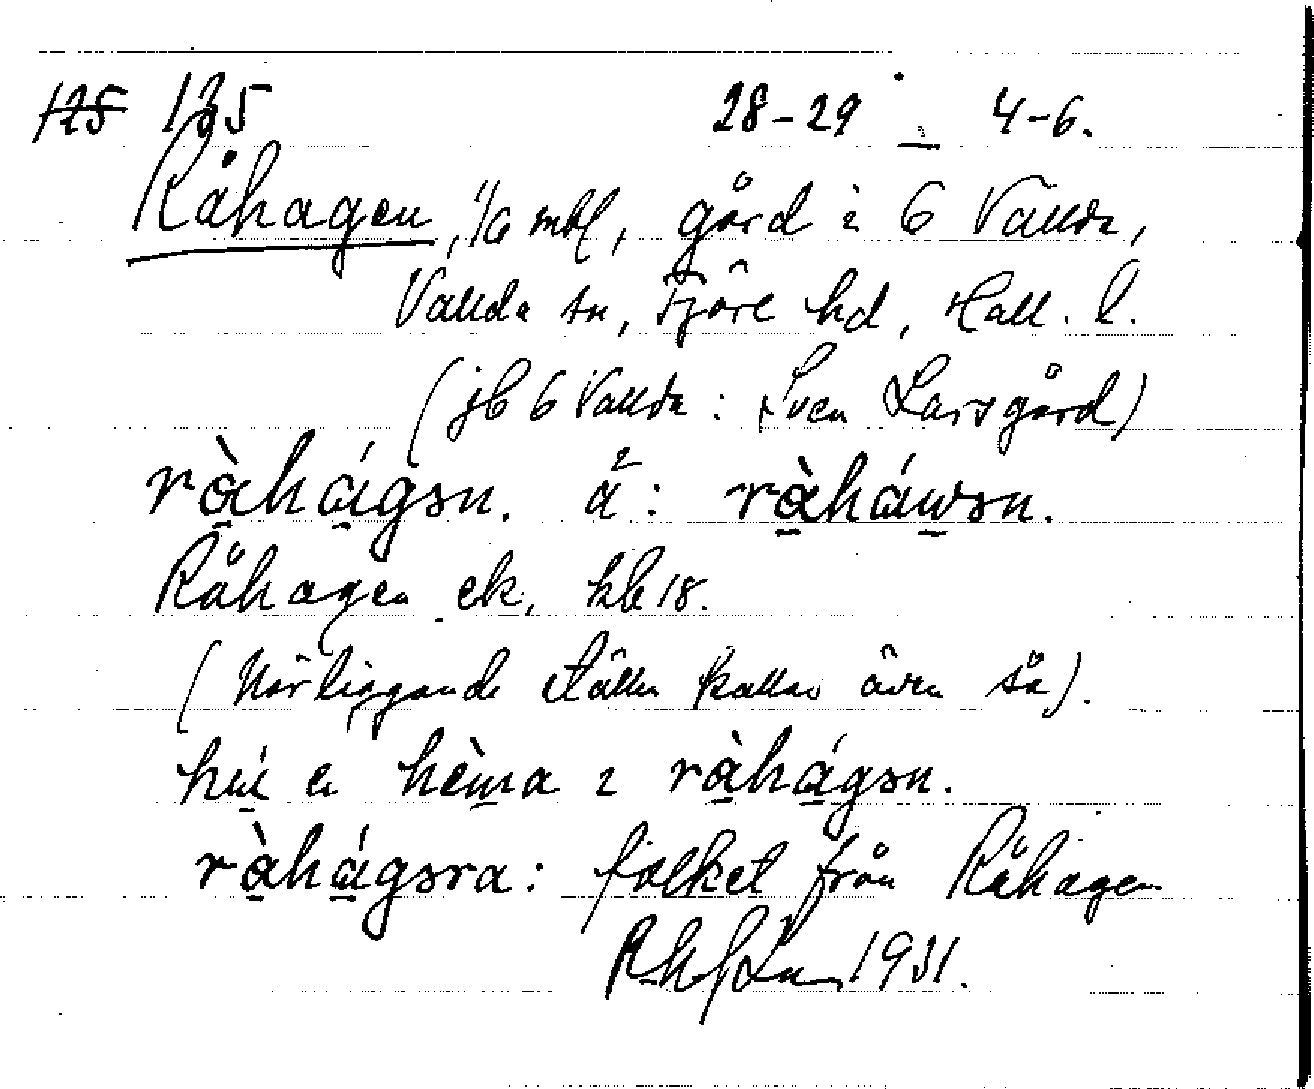 125 135 28-29 4-6.
Råhagen, 1/6 mtl, gård i 6 Vallda,
Vallda sn, Fjäre hd, Hall. l.
(jb 6 Vallda: Sven Larsgård)
rà̱há̱gən. ä: rà̱háw̱ən.
Råhagen ek, hb 18.
(Närliggande ställen kallas även så).
e hèm̱a ɩ rà̱há̱gən.
rà̱há̱gəra: folket från Råhagen
1931.